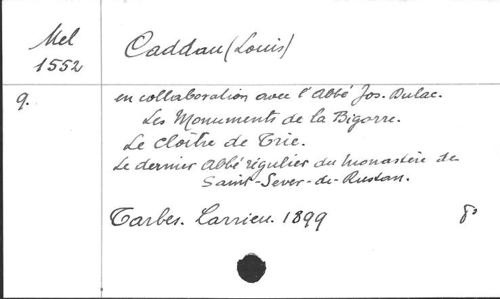 Mel
1552
Caddau (Louis)
9.
en collaboration avec l'Abbé Jos. Dulac.
Les Monuments de la Bigorre.
Le Cloître de Trie.
Le dernier Abbé régulier du monastère de
Saint-Sever-de-Rustan.
Tarbes. Larrieu. 1899
8°